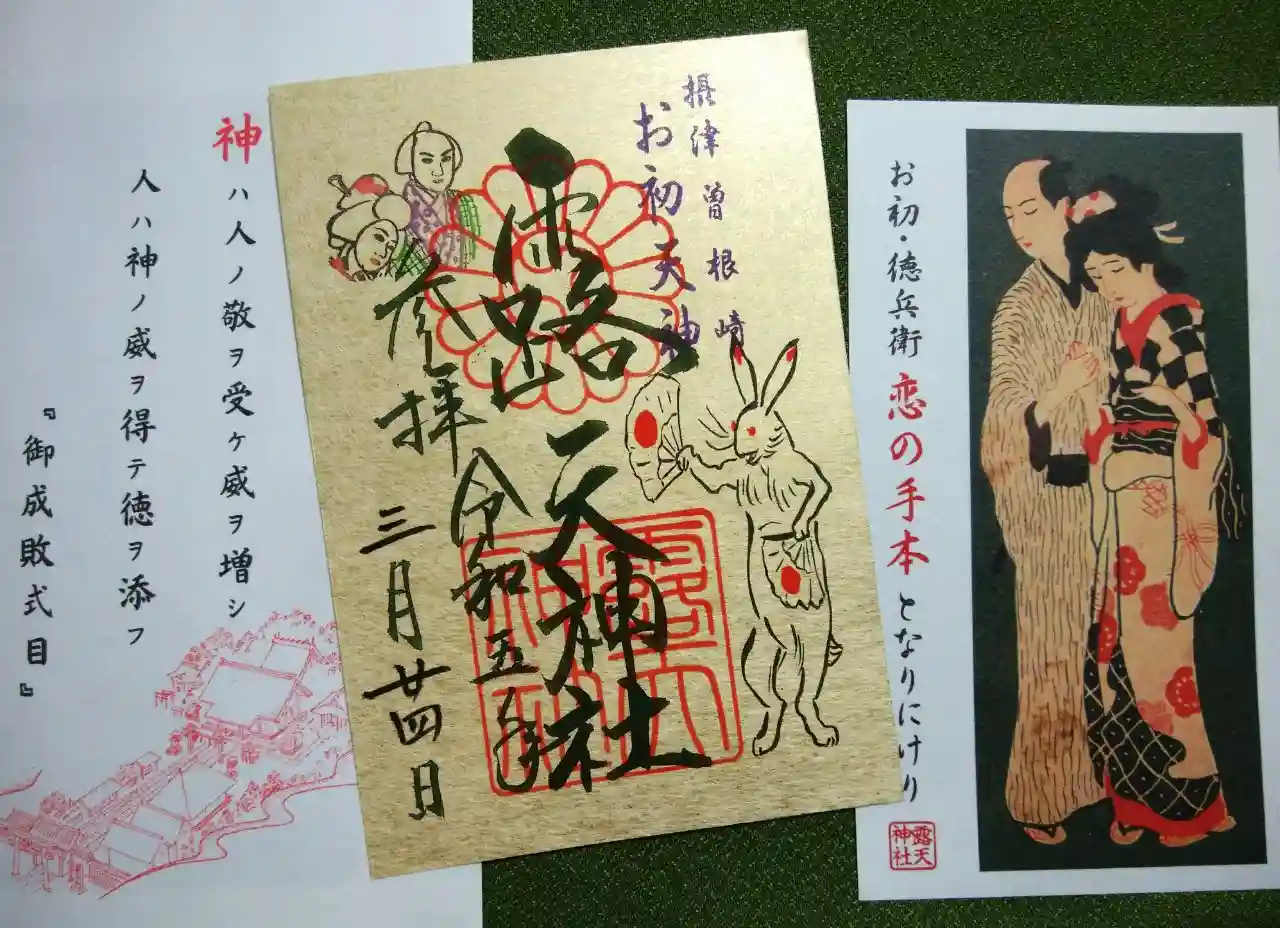 神ハ人ノ敬ヲ受ケ威ヲ増シ
人ハ神ノ威ヲ得テ徳ヲ添フ
『御成敗式目』
摂津曽根崎
お初天神
露天神社
令和五年
三月廿四日
参拝
お初・徳兵衛 恋の手本となりにけり
露天
神社